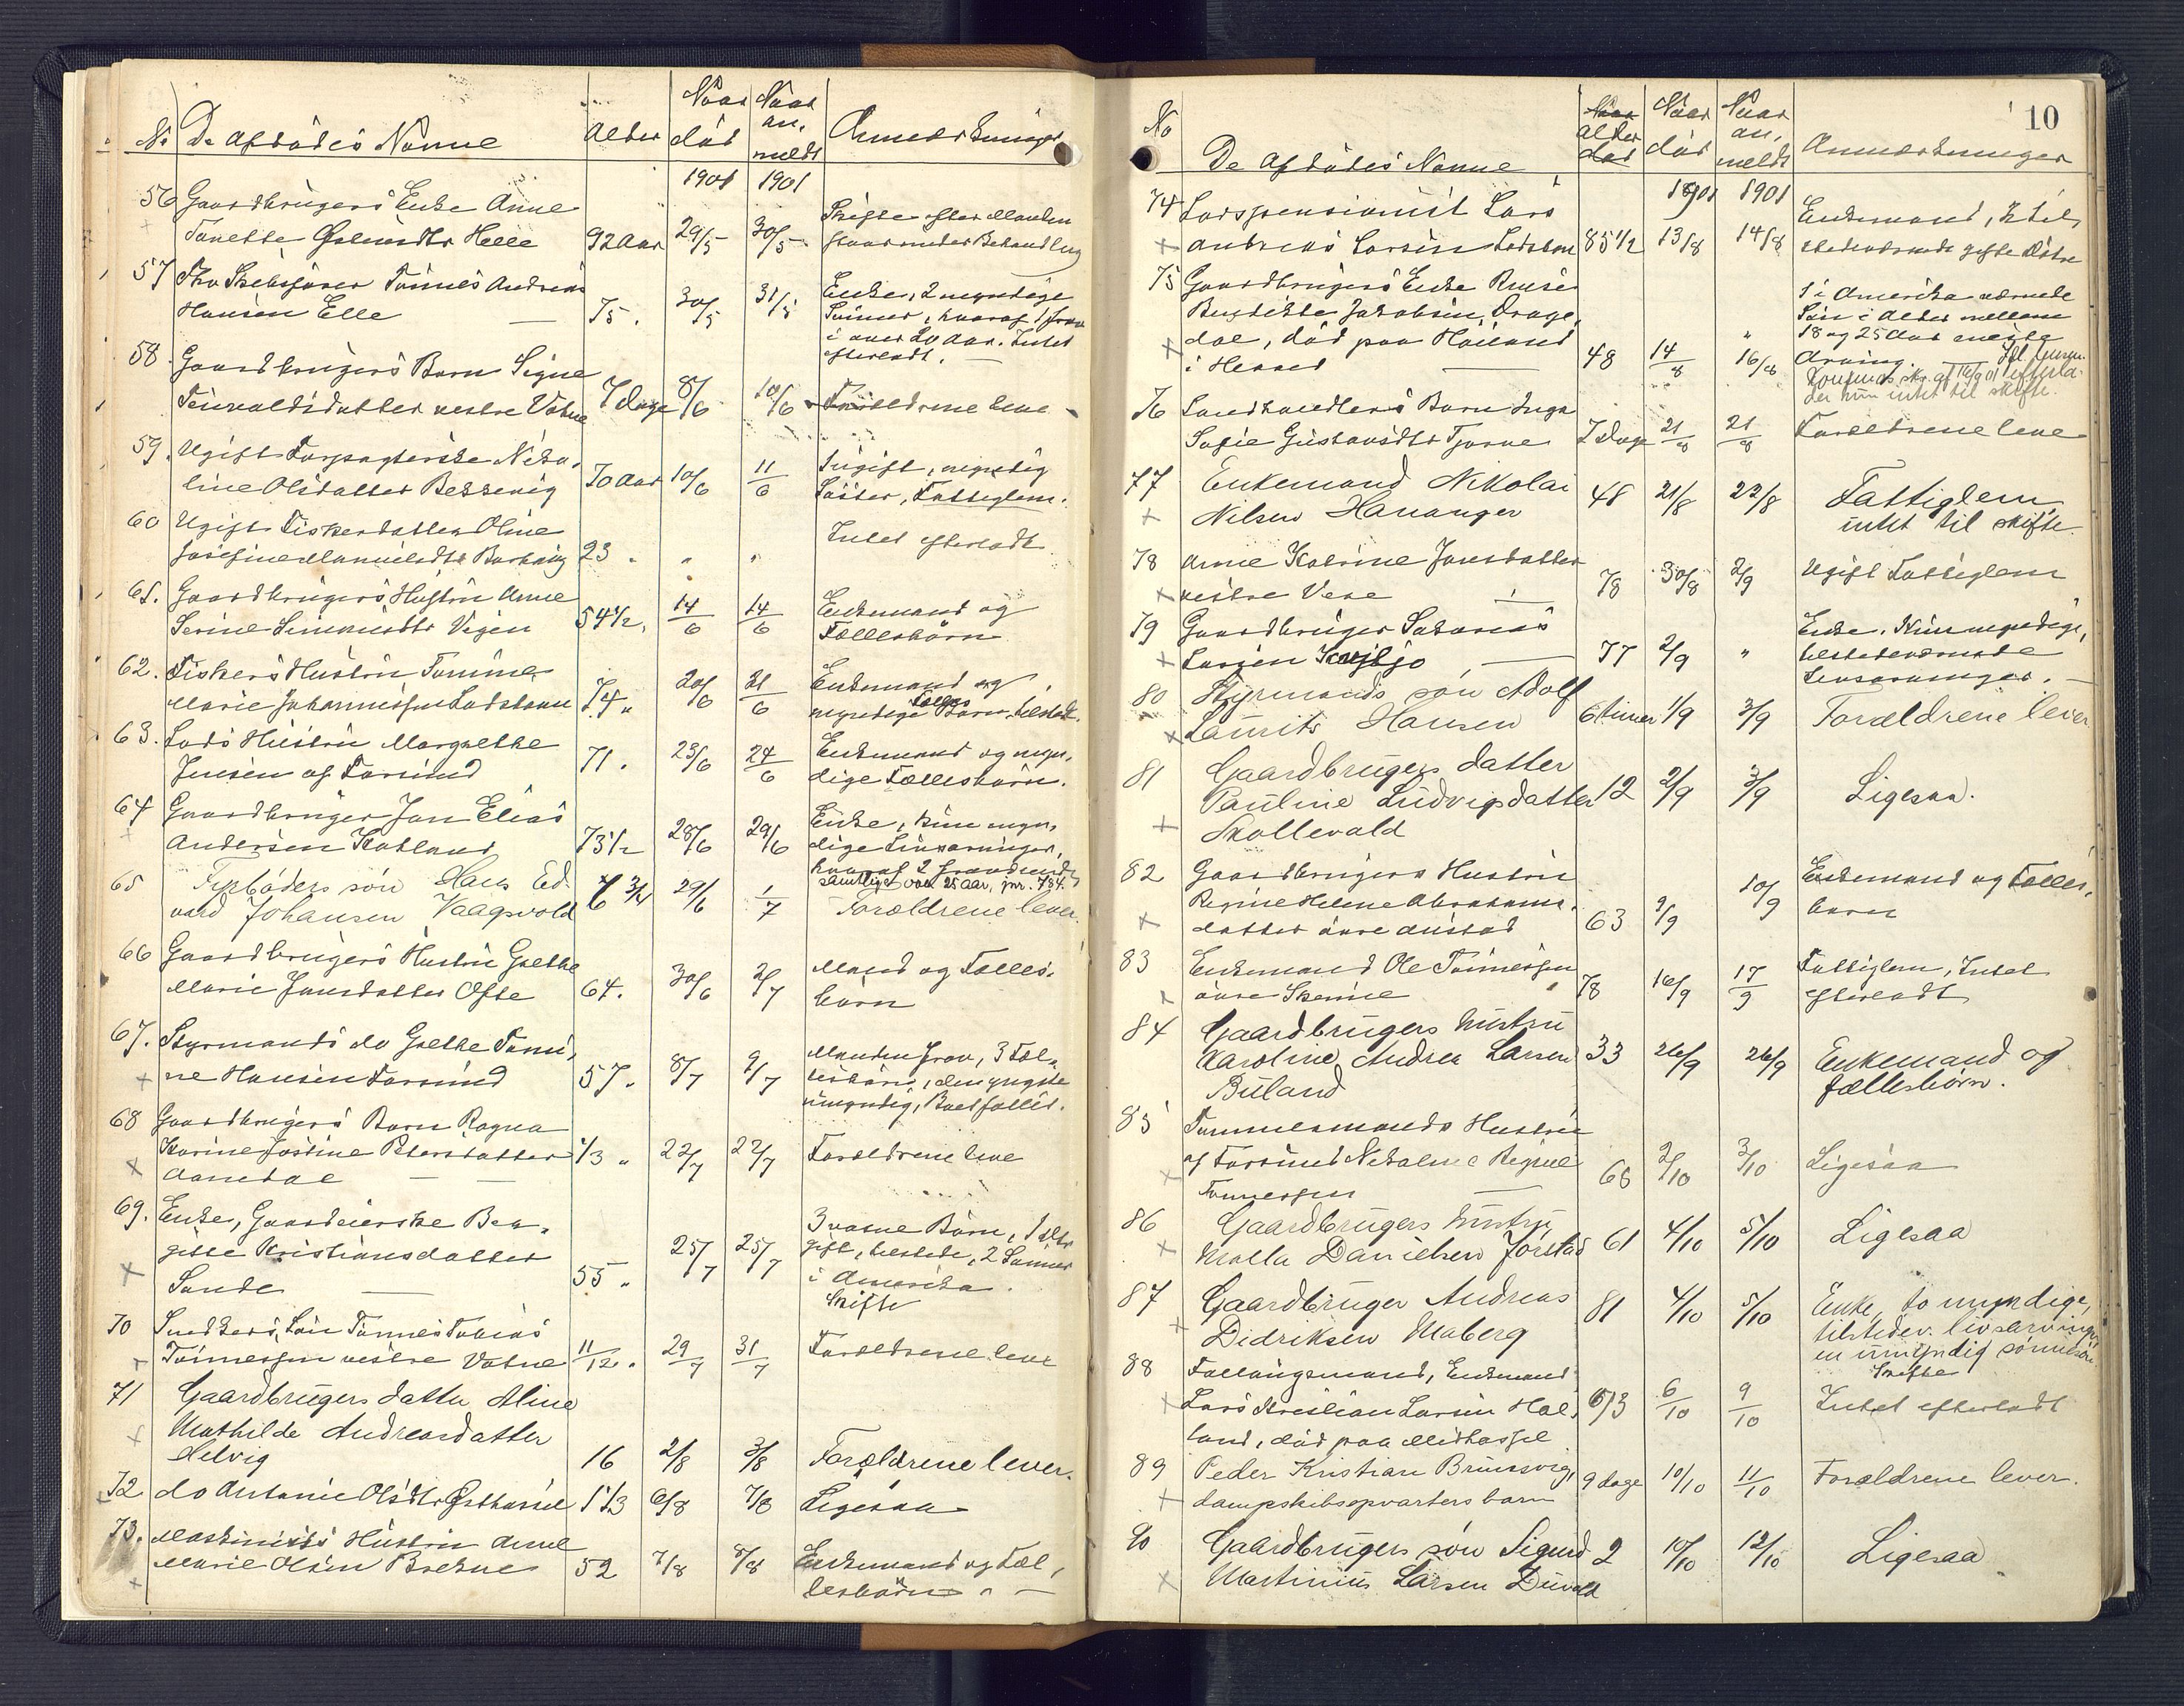 No De afdødes Navne Alder Naar død Naar an, meldt Anmærkninger
1901 1901
56 Gaardbrugers Enke Anne
Tonette Helle 92 Aar 29/5 30/5 Skifte efter Manden
staar under Behandling
57 Fhv Skibsfører Tønnes Andreas
Hansen Elle 75. 30/5 31/5 Enke, 2 myndige
Sønner, hvoraf 1 frav
i over 20 Aar. Intet
efterladt.
58. Gaardbrugers Barn Signe
Tenvaldsdatter vestre Vatne 7 dage 8/6 10/6 Forældrene leve
59. Ugift Nico,
line Olsdatter Bessevig 70 Aar 10/6 11/6 1 ugift, myndig
Søster, Fattiglem.
60 Ugift Fiskerdatter Oline
Josefine 23 " " Intet efterladt
61. Gaardbrugers Hustru Anne
Serine Vigen 54 1/2 14/6 14/6 Enkemand og
Fællesbørn
62. Fiskers Hustru Tomine
Marie Johannessen Lodshavn 74 " 20/6 21/6 Enkemand og
myndige Fælles Børn, tilstede.
63. Lods Hustru Margrethe
Jensen af Farsund 71. 23/6 24/6 Enkemand og myn,
dige Fællesbørn.
64 Gaardbruger Jan Elias
Andersen Katland 73 1/2 28/6 29/6 Enke, kun myn,
dige Livsarvinger,
hvoraf 2 fraværende,
samtlige over 25 aar, jnr. 734.
65 Fyrbøders søn Hans Ed.
vard Johansen Vaagsvold 6 3/4 29/6 1/7 Forældrene lever.
66 Gaardbrugers Hustru Grethe
Marie Jansdatter Ofte 64. 30/6 2/7 Mand og Fælles,
børn
67. Styrmands do Grethe Tomi,
ne Hansen Farsund 57. 8/7 9/7 Manden frav, 3 Fæl,
lesbørn, den yngste
umyndig, Boet fallit.
68 Gaardbrugers Barn Ragna
Karine Jostine Petersdatter 1/3 " 22/7 22/7 Forældrene leve
Aamdal
69. Enke, Gaardeierske Ber,
gitte Kristiansdatter
Sande 55 " 25/7 25/7 3 voxne Børn, 1 dtr
gift, tilstede, 2 Sønner
i Amerika.
Skifte
70 Snedkers Søn Tønnes Tobias
Tønnessen vestre Vatne 11/12. 29/7 31/7 Forældrene leve
71 Gaardbrugers datter Aline
Mathilde Andreasdatter
Helvig 16 2/8 3/8 Forældrene lever.
72 do Antonie Olsdtr Østhassel 1 1/3 6/8 7/8 Ligesaa
73. Maskinists Hustru Anne
Marie Olsen Brekne 52 7/8 8/8 Enkemand og Fæl,
lesbørn

10
No De afdødes Navne Alder Naar død Naar an, meldt Anmærkninger
1901 1901
74 Lodspensionist Lars
Andreas Larsen Lodshavn 85 1/2 13/8 14/8 Enkemand, 2 tils
stedeværende gifte Døtre
75 Gaardbrugers Enke
Benedikte Jakobsen, Drage,
dal, død paa Høiland
i Hessel 48 14/8 16/8 1 i Amerika værende
Søn i Alder mellem
18 og 25 Aar eneste
Arving.
der hun intet til skifte.
76 Landhandlers Barn Inga
Sofie Gustavsdtr Tjorve 7 Dage 21/8 21/8 Forældrene leve
77 Enkemand Nikolai
Nilsen Hananger 48 21/8 22/8 Fattiglem,
intet til skifte.
78 Anne Katrine Jansdatter
vestre Vere 78 30/8 2/9 Ugift Fattiglem
79 Gaardbruger Sakarias
Larsen 77 2/9 " Enke. Kun myndige,
tilstedeværende
Livsarvinger.
80 Styrmands søn Adolf
Laurits Hansen 6 timer 1/9 3/9 Forældrene lever
81 Gaardbrugers datter
Pauline Ludvigsdatter 12 2/9 3/9 Ligesaa.
Skollevold
82 Gaardbrugers Hustru
Regine Helene Abrahams,
datter øvre Austad 63 9/9 10/9 Enkemand og Fælles,
børn
83 Enkemand Ole Tønnessen
øvre Skeime 78 16/9 17/9 Fattiglem, Intet
efterladt
84 Gaardbrugers hustru
Karoline Andrea Larsen 33 26/9 26/9 Enkemand og
Buland fællesbørn.
85 Tømmermands Hustru
af Farsund Nikoline Regine 68 2/10 3/10 Ligesaa
Tønnessen
86 Gaardbrugers hustru
Malla Danielsen Jørstad 61 4/10 5/10 Ligesaa
87 Gaardbruger Andreas
Didriksen Maberg 81 4/10 5/10 Enke, to myndige,
tilstedev. livsarvinger
en umyndig sønnesøn
Skifte
88 Enkemand
Lars Kristian Larsen Høi,
land, død paa Midhassel 63 6/10 9/10 Intet efterladt
89 Peder Kristian Brunsvig,
dampskibsopvarters barn 9 dage 10/10 11/10 Forældrene lever.
90 Gaardbrugers søn Sigurd 2 10/10 12/10 Ligesaa
Martinius Larsen